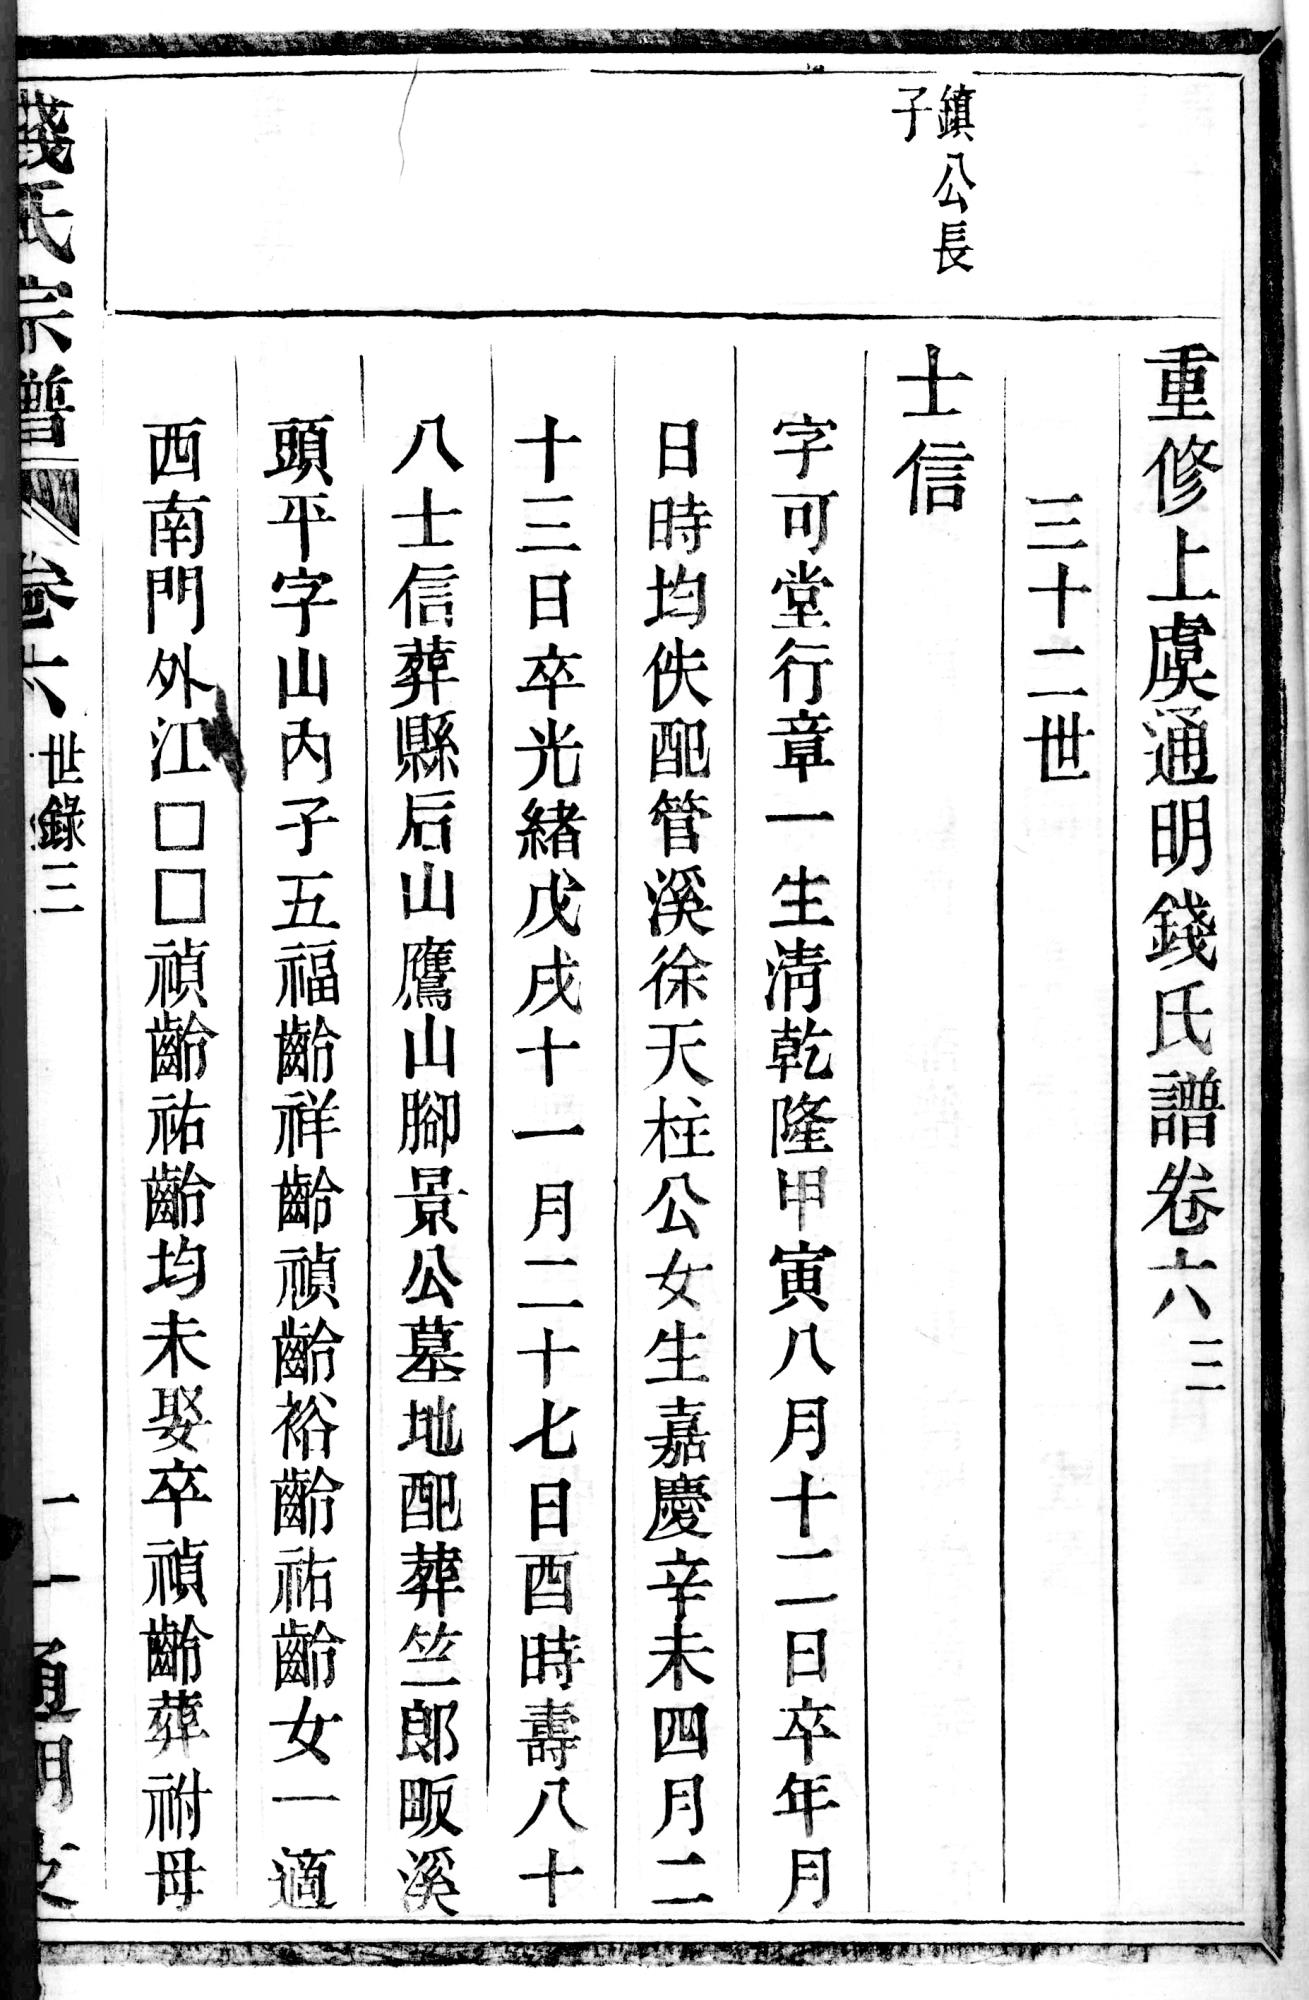 重修上虞通明錢氏譜卷六三
三十二世
鎮公長
子
士信
字可堂行章一生清乾隆甲寅八月十二日卒年月
日時均佚配管溪徐天柱公女生嘉慶辛未四月二
十三日卒光緒戊戌十一月二十七日酉時壽八十
八士信葬縣后山鷹山腳景公墓地配葬竺郎畈溪
頭平字山內子五福齡祥齡禎齡裕齡祐齡女一適
西南門外江□□禎齡祐齡均未娶卒禎齡葬祔母
錢氏宗譜 卷六 世錄三 一 通明支